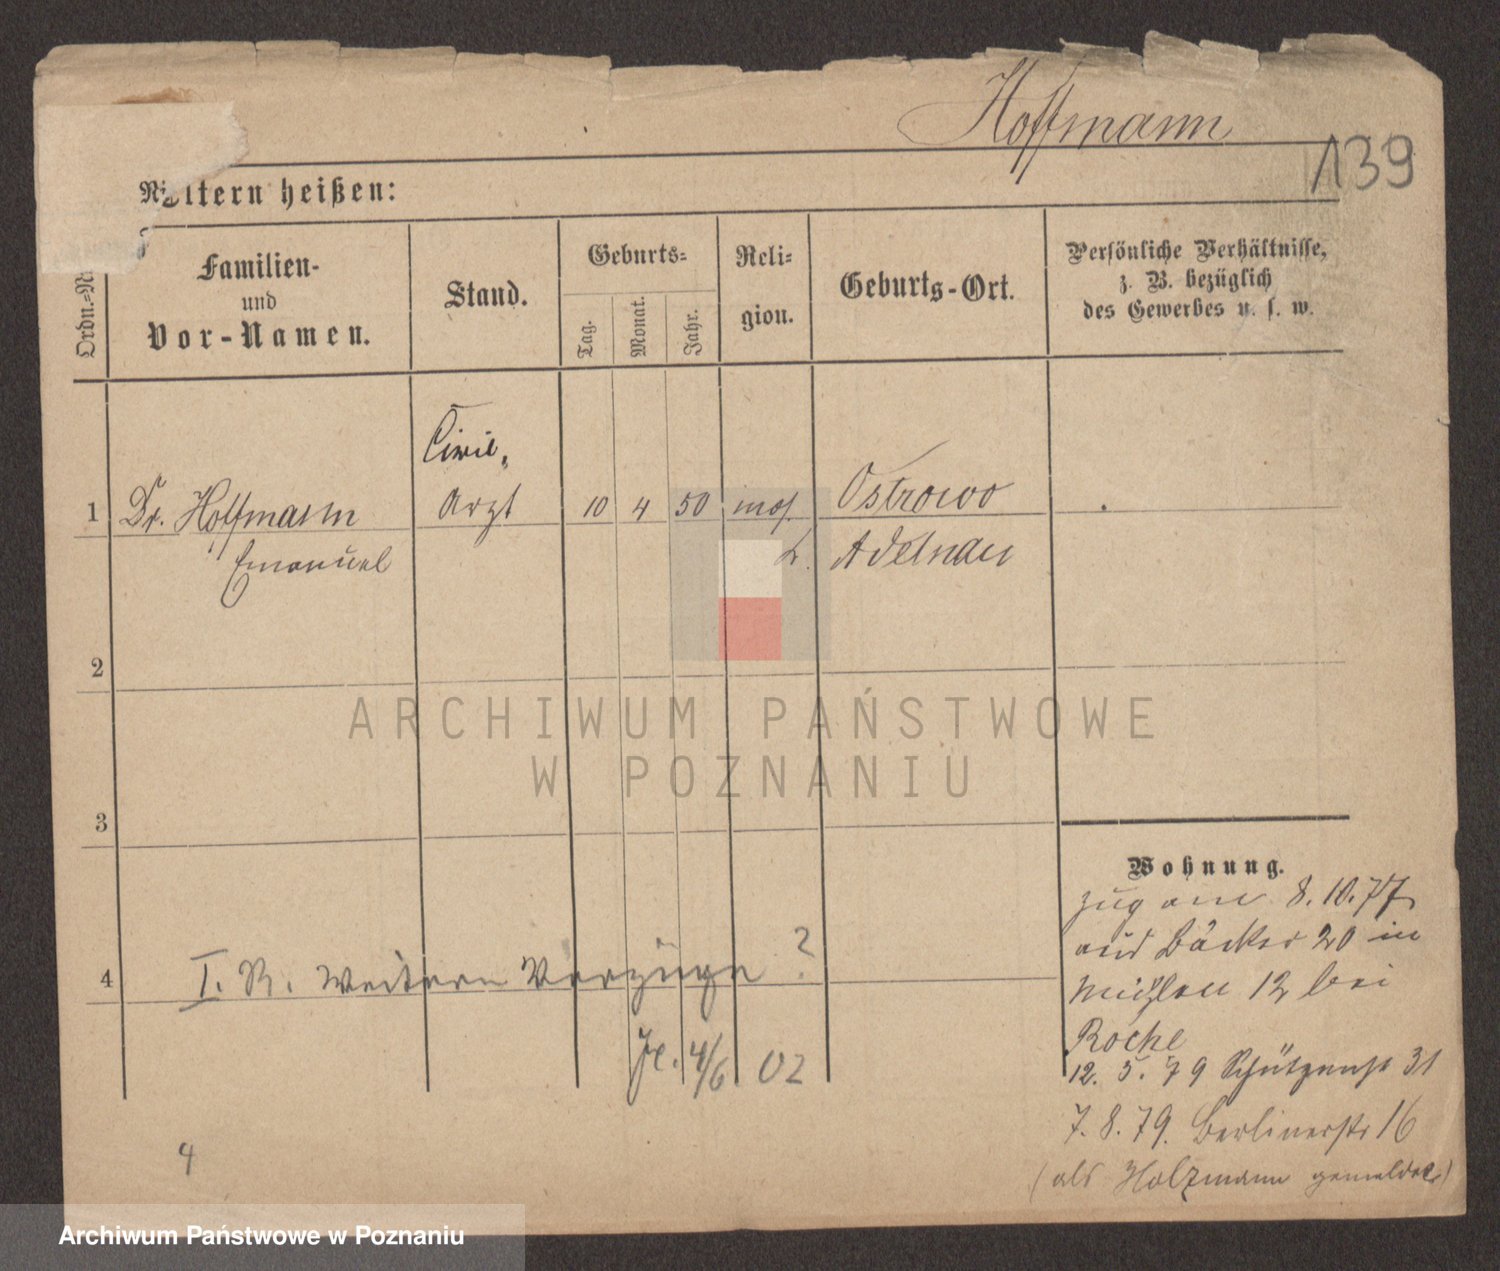 Hoffmann
139
Eltern heißen:
Ordn.=Nr.
Familien-
und
Vor-Namen.
Stand.
Geburts=
Tag.
Monat.
Jahr.
Reli=
gion.
Geburts-Ort.
Persönliche Verhältnisse,
z. B. bezüglich
des Gewerbes u. s. w.
1 Dr. Hoffmann
Emanuel
Civil,
Arzt
10 4 50 mos.
Ostrowo
Adelnau
2
3
4
I. R. Weitern Verzüge ?
4/6 02
Wohnung.
zug am 8.10.77
aus Bäcker 20 in
Mühlen 12 bei
Roche
12. 5. 79 Schützenstr 31
7. 8. 79. Berlinerstr 16
(als Holzmann gemeldet)
4
ARCHIWUM PAŃSTWOWE
W POZNANIU
Archiwum Państwowe w Poznaniu